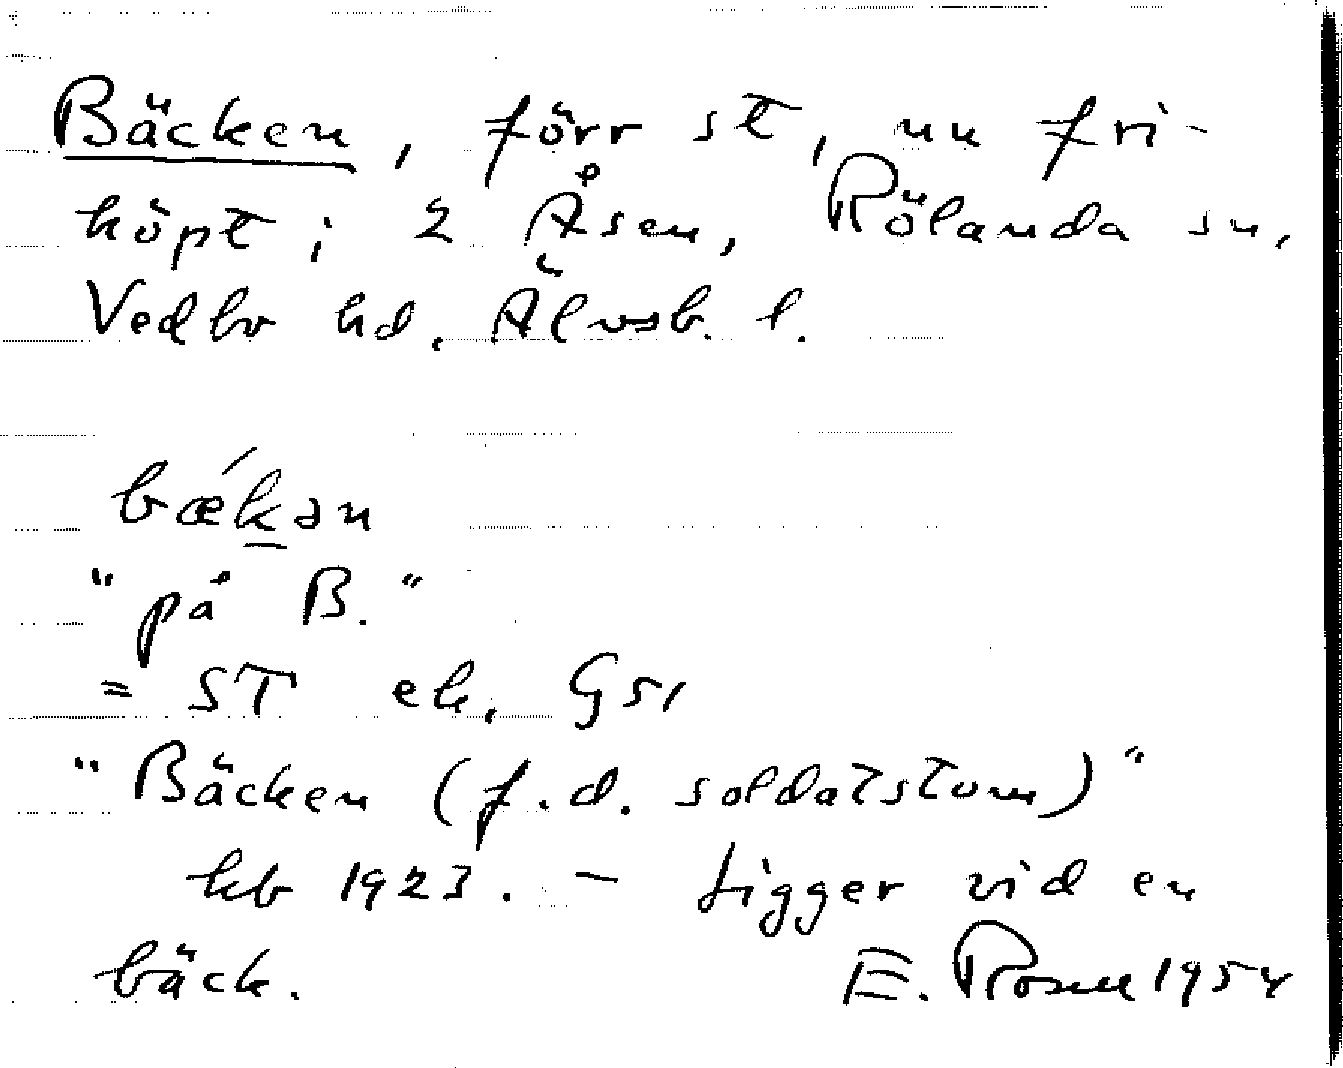 Bäcken, förr st, nu fri-
köpt i 2 Åsen, Rölanda sn,
Vedbo hd. Älvsb. l.
bǽkən
"på B."
= ST ek. G51
"Bäcken (f.d. soldatstom)"
kb 1923. - Ligger vid en
bäck.
E. Rosell 1954